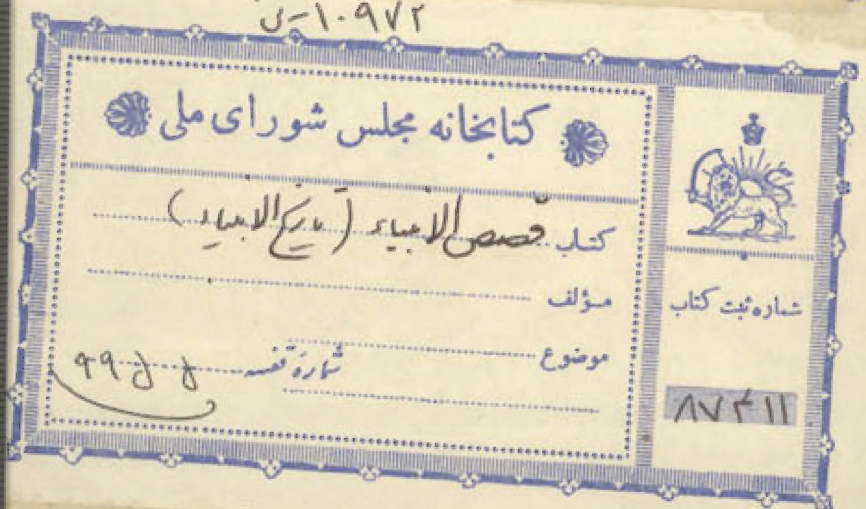 ۱۰۹۷۲-ی
کتابخانه مجلس شورای ملی
کتاب قصص الانبیاء (تاریخ الانبیاء)
مؤلف
موضوع
شمارهٔ قفسه
شماره ثبت کتاب
۸۷۳۱۱